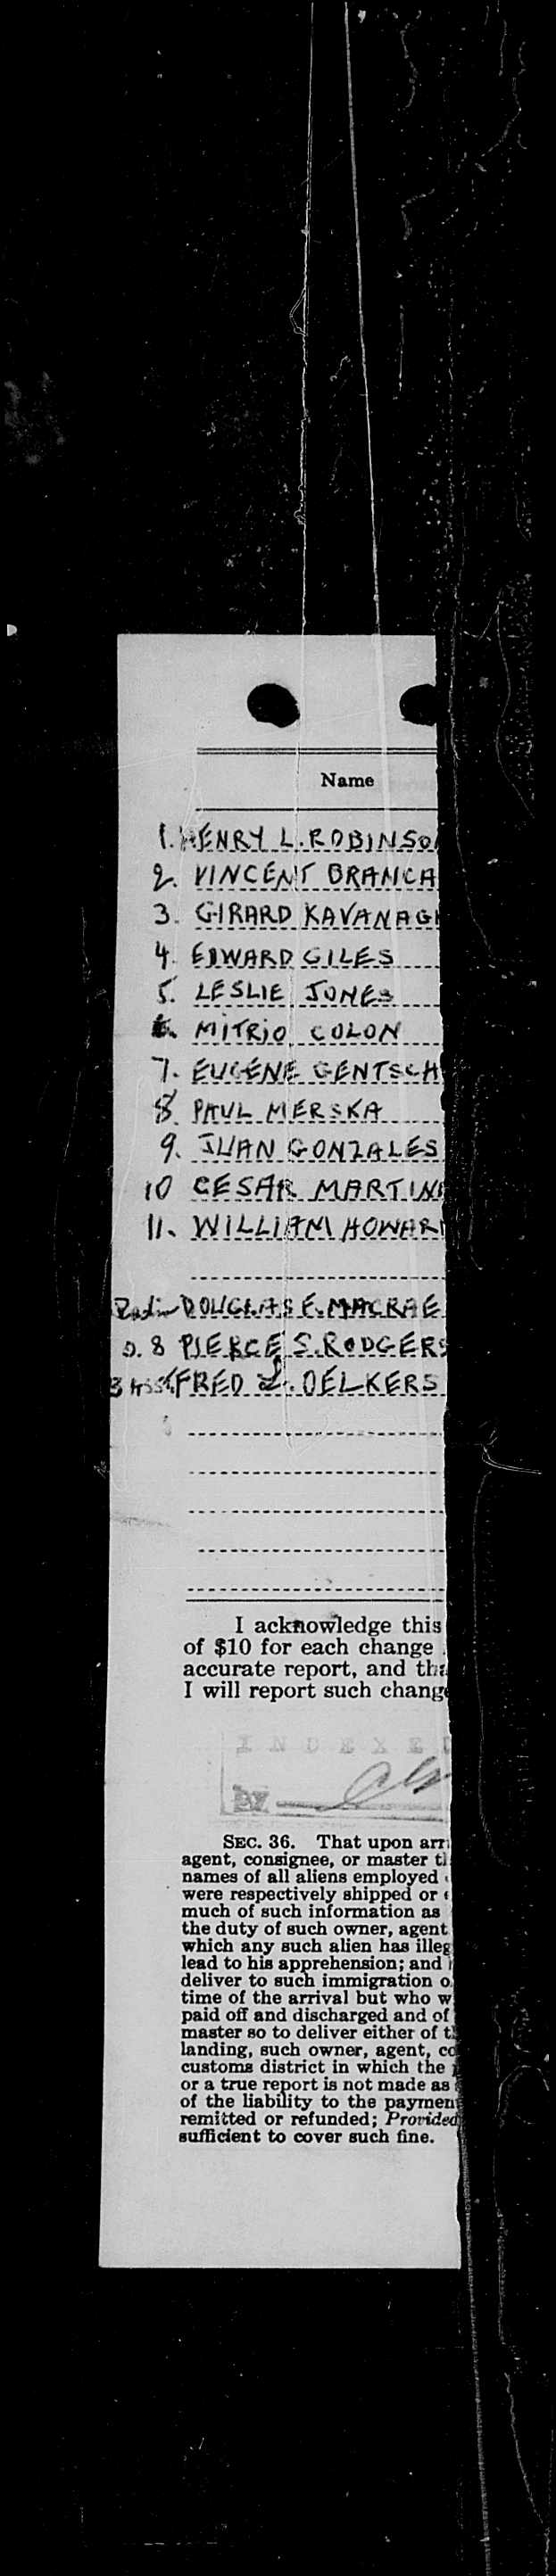 Name
1. HENRY L. ROBINSO
2. VINCENT BRANCA
3. GIRARD KAVANAG
4. EDWARD GILES
5. LESLIE JONES
6. MITRIO COLON
7. EUGENE GENTSCH
8. PAUL MERSKA
9. JUAN GONZALES
10 CESAR MARTIN
11. WILLIAM HOWAR
Radio DOUGLAS E. MACRAE
O.S PIERCE S. RODGERS
3 Asst FRED L. OELKERS
I acknowledge this
of $10 for each change
accurate report, and tha
I will report such chang
INDEXED
BY
SEC. 36. That upon arr
agent, consignee, or master t
names of all aliens employed
were respectively shipped or
much of such information as
the duty of such owner, agent
which any such alien has illeg
lead to his apprehension; and
deliver to such immigration o
time of the arrival but who w
paid off and discharged and of
master so to deliver either of t
landing, such owner, agent, co
customs district in which the
or a true report is not made as
of the liability to the paymen
remitted or refunded; Provided
sufficient to cover such fine.